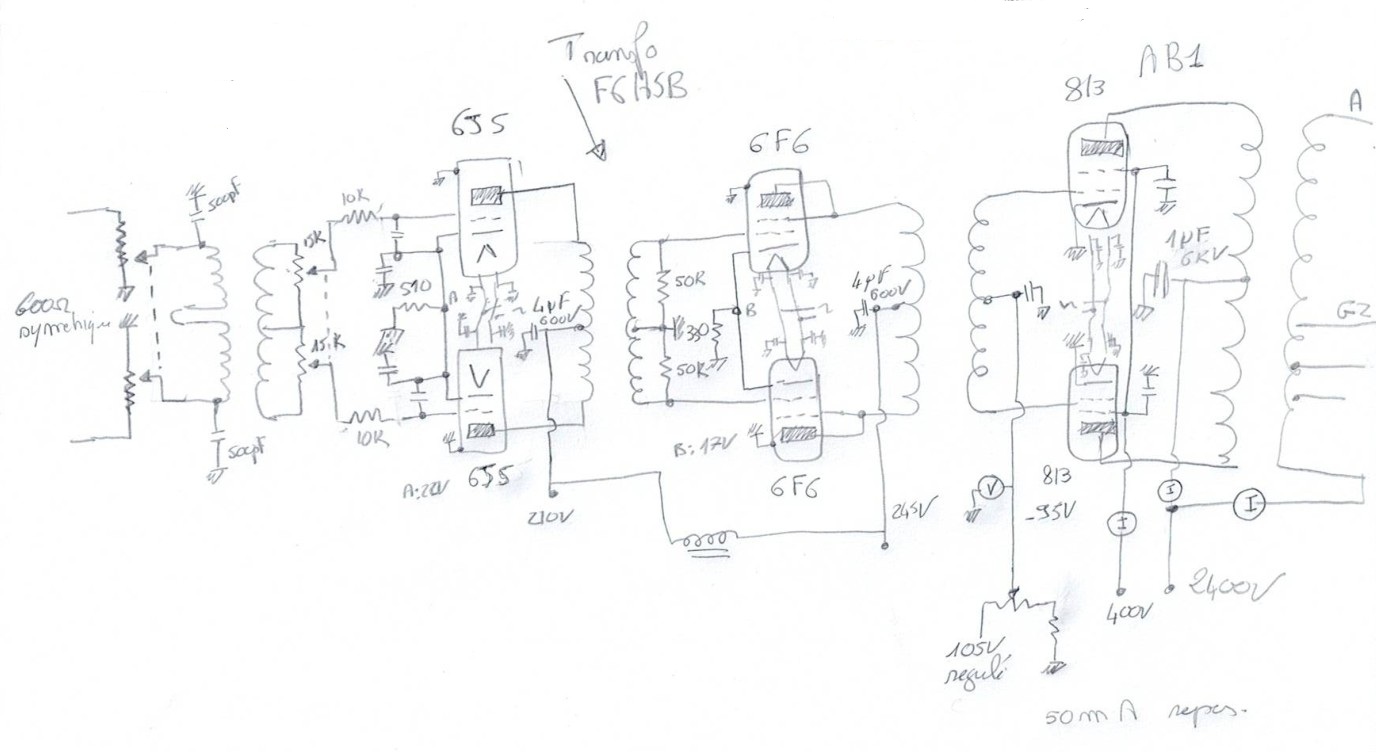 Transfo
F6HSB
AB1
813
6J5
6F6
A
500pF
10K
15K
600Ω
symetrique
510
A
4µF
600V
50K
B
330
50K
4µF
600V
1µF
6KV
G2
15K
10K
500pF
A: 22V
6J5
210V
B: 17V
6F6
245V
V
813
-95V
I
I
I
400V
2400V
105V
regulé
50mA repos.